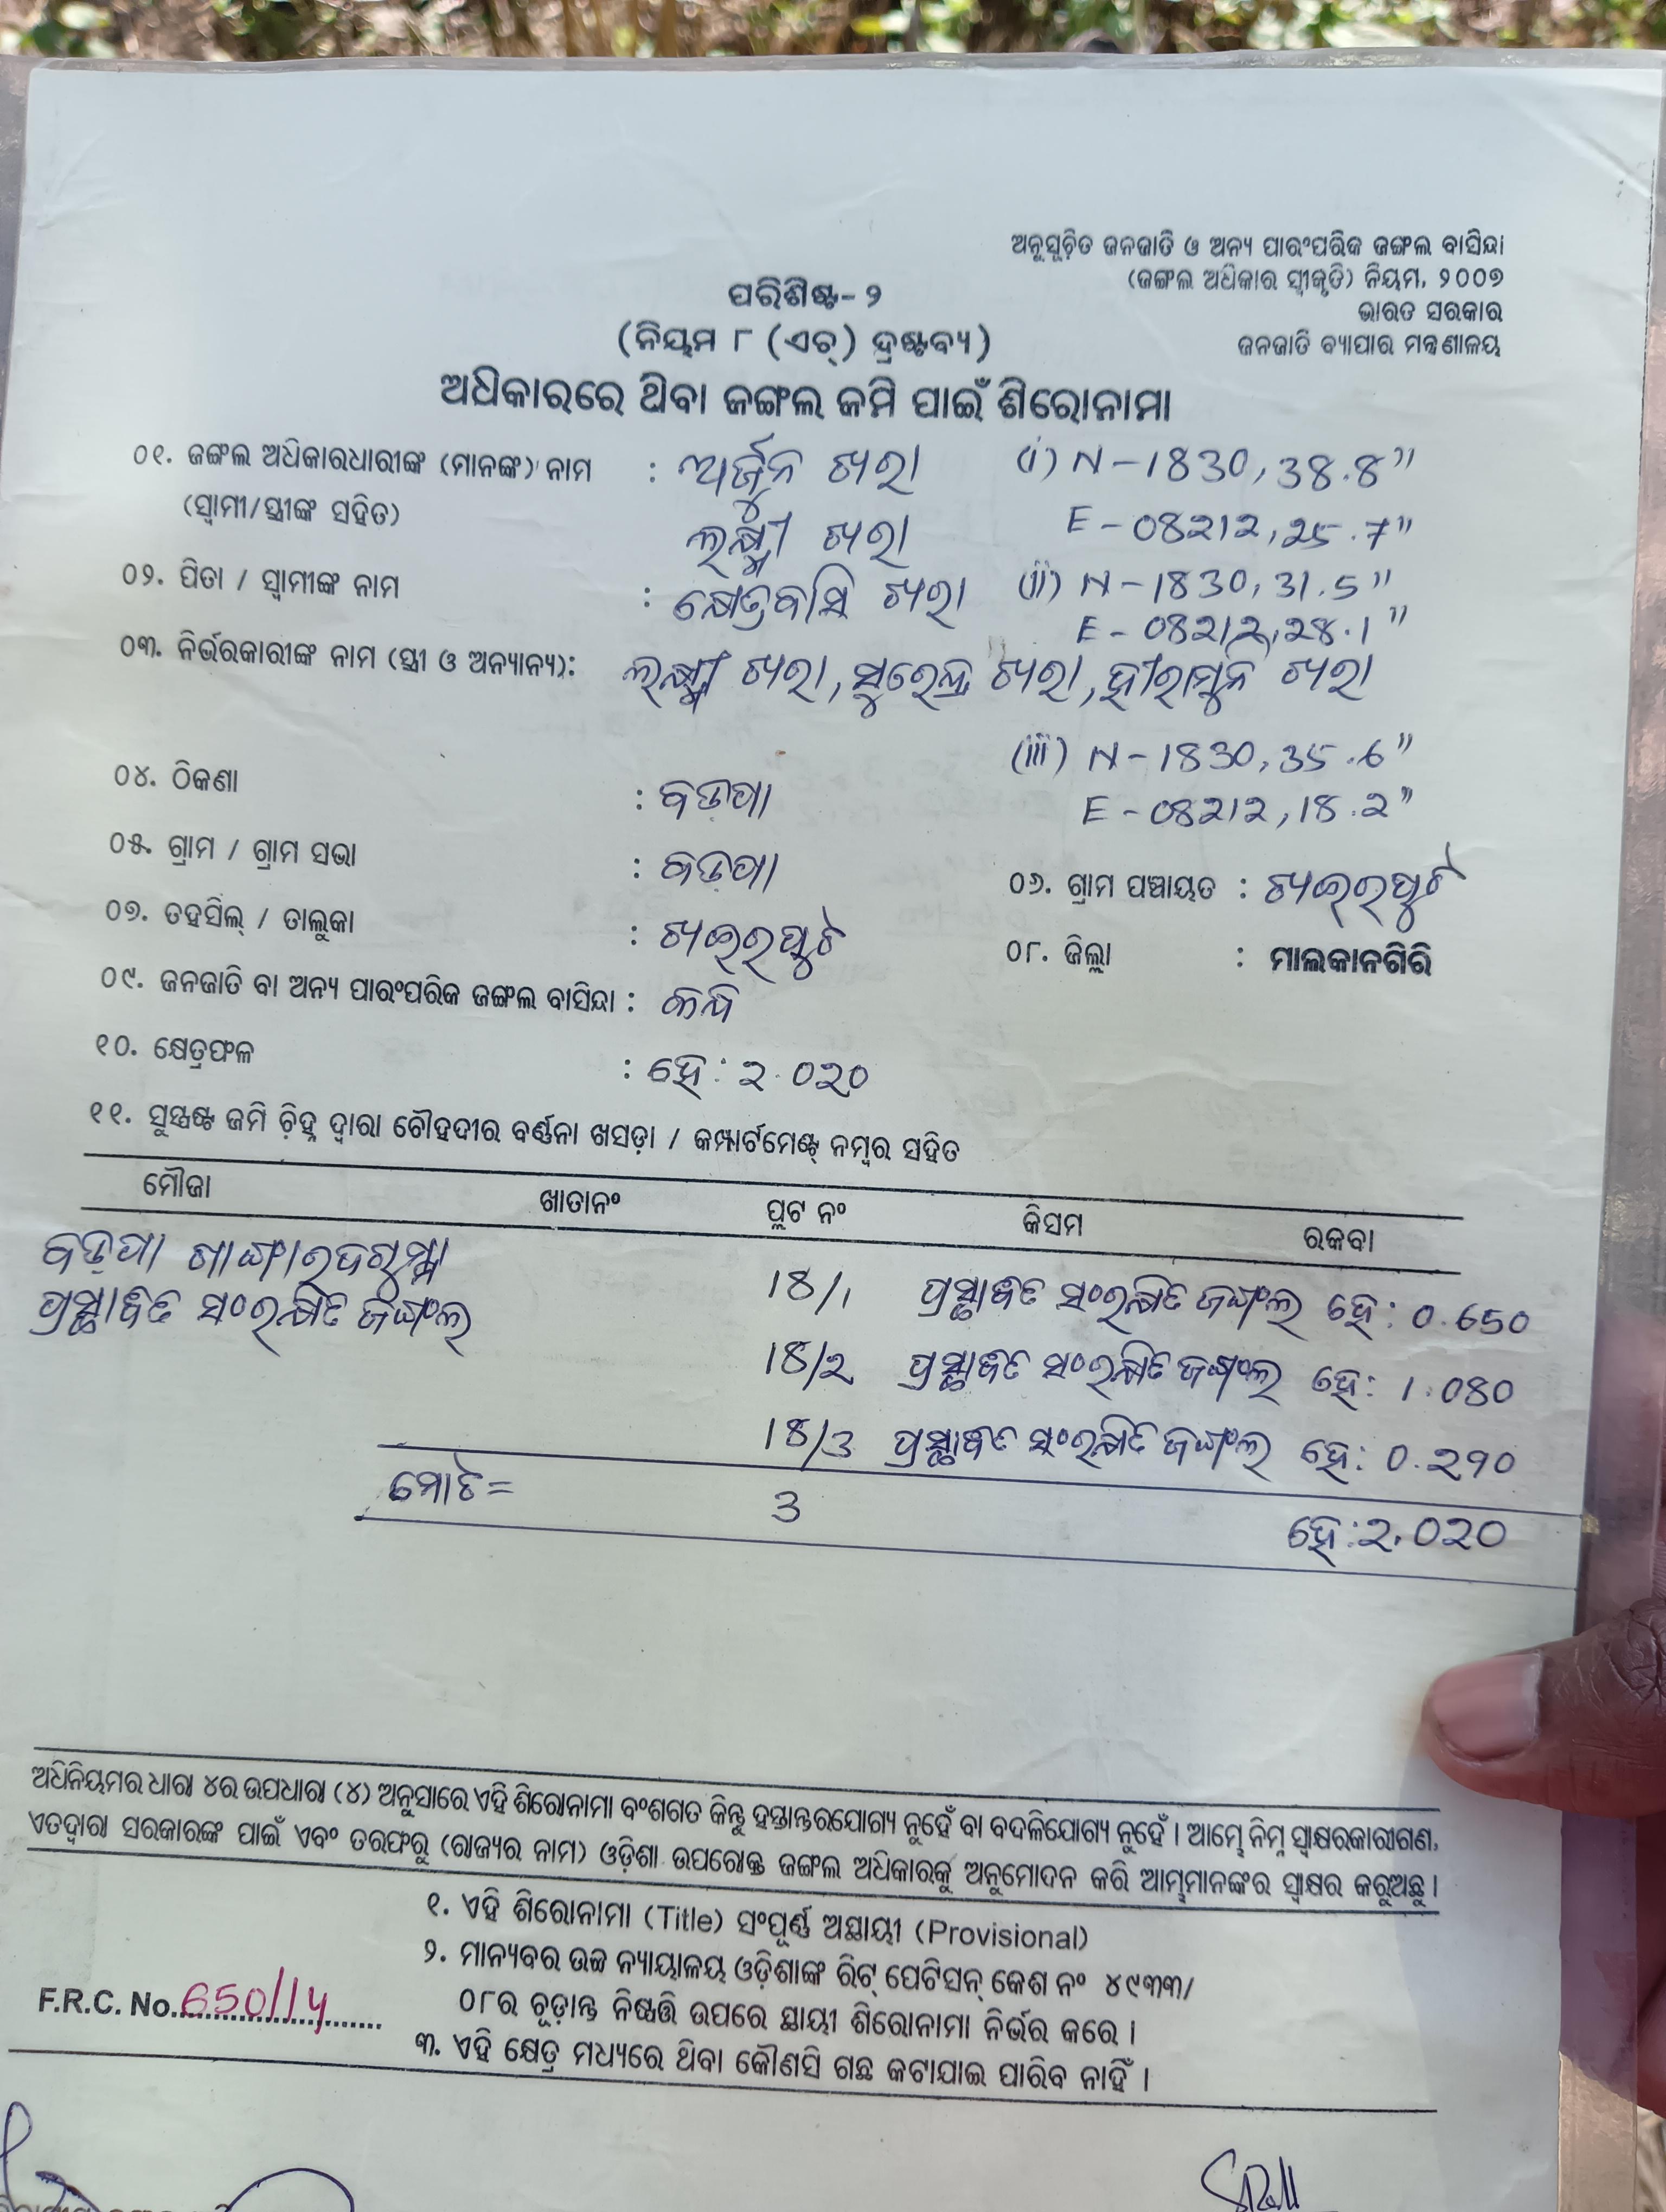 ଅନୁସୂଚିତ ଜନଜାତି ଓ ଅନ୍ୟ ପାରଂପରିକ ଜଙ୍ଗଲ ବାସିନ୍ଦା
(ଜଙ୍ଗଲ ଅଧିକାର ସ୍ୱୀକୃତି) ନିୟମ, ୨୦୦୭
ଭାରତ ସରକାର
ଜନଜାତି ବ୍ୟାପାର ମନ୍ତ୍ରଣାଳୟ
ପରିଶିଷ୍ଟ- ୨
(ନିୟମ ୮ (ଏଚ୍) ଦ୍ରଷ୍ଟବ୍ୟ)
ଅଧିକାରରେ ଥିବା ଜଙ୍ଗଲ ଜମି ପାଇଁ ଶିରୋନାମା
୦୧. ଜଙ୍ଗଲ ଅଧିକାରଧାରୀଙ୍କ (ମାନଙ୍କ) ନାମ : ଅର୍ଜୁନ ଖରା (i) N - 1830, 38.8"
(ସ୍ୱାମୀ/ସ୍ତ୍ରୀଙ୍କ ସହିତ) ଲକ୍ଷ୍ମୀ ଖରା E - 08212, 25.7"
୦୨. ପିତା / ସ୍ୱାମୀଙ୍କ ନାମ : କ୍ଷେତ୍ରବାସି ଖରା (ii) N - 1830, 31.5"
E - 08212, 28.1"
୦୩. ନିର୍ଭରକାରୀଙ୍କ ନାମ (ସ୍ତ୍ରୀ ଓ ଅନ୍ୟାନ୍ୟ): ଲକ୍ଷ୍ମୀ ଖରା, ସୁରେନ୍ଦ୍ର ଖରା, ହୀରାମୁନି ଖରା
(iii) N - 1830, 35.6"
୦୪. ଠିକଣା : ବଡପା E - 08212, 18.2"
୦୫. ଗ୍ରାମ / ଗ୍ରାମ ସଭା : ବଡପା ୦୬. ଗ୍ରାମ ପଞ୍ଚାୟତ : ଖଇରପୁଟ
୦୭. ତହସିଲ୍ / ତାଲୁକା : ଖଇରପୁଟ ୦୮. ଜିଲ୍ଲା : ମାଲକାନଗିରି
୦୯. ଜନଜାତି ବା ଅନ୍ୟ ପାରଂପରିକ ଜଙ୍ଗଲ ବାସିନ୍ଦା : କନ୍ଧ
୧୦. କ୍ଷେତ୍ରଫଳ : ହେ: 2.020
୧୧. ସୁସ୍ପଷ୍ଟ ଜମି ଚିହ୍ନ ଦ୍ୱାରା ଚୌହଦୀର ବର୍ଣ୍ଣନା ଖସଡ଼ା / କମ୍ପାର୍ଟମେଣ୍ଟ୍ ନମ୍ବର ସହିତ
ମୌଜା ଖାତାନଂ ପ୍ଲଟ ନଂ କିସମ ରକବା
ବଡପା
ପ୍ରସ୍ଥାବିତ ସଂରକ୍ଷିତ ଜଙ୍ଗଲ 18/1 ପ୍ରସ୍ଥାବିତ ସଂରକ୍ଷିତ ଜଙ୍ଗଲ ହେ: 0.650
18/2 ପ୍ରସ୍ଥାବିତ ସଂରକ୍ଷିତ ଜଙ୍ଗଲ ହେ: 1.080
18/3 ପ୍ରସ୍ଥାବିତ ସଂରକ୍ଷିତ ଜଙ୍ଗଲ ହେ: 0.290
ମୋଟ= 3 ହେ: 2.020
ଅଧିନିୟମର ଧାରା ୪ର ଉପଧାରା (୪) ଅନୁସାରେ ଏହି ଶିରୋନାମା ବଂଶଗତ କିନ୍ତୁ ହସ୍ତାନ୍ତରଯୋଗ୍ୟ ନୁହେଁ ବା ବଦଳିଯୋଗ୍ୟ ନୁହେଁ । ଆମ୍ଭେ ନିମ୍ନ ସ୍ୱାକ୍ଷରକାରୀଗଣ,
ଏତଦ୍ୱାରା ସରକାରଙ୍କ ପାଇଁ ଏବଂ ତରଫରୁ (ରାଜ୍ୟର ନାମ) ଓଡ଼ିଶା ଉପରୋକ୍ତ ଜଙ୍ଗଲ ଅଧିକାରକୁ ଅନୁମୋଦନ କରି ଆମ୍ଭମାନଙ୍କର ସ୍ୱାକ୍ଷର କରୁଅଛୁ ।
୧. ଏହି ଶିରୋନାମା (Title) ସଂପୂର୍ଣ୍ଣ ଅସ୍ଥାୟୀ (Provisional)
୨. ମାନ୍ୟବର ଉଚ୍ଚ ନ୍ୟାୟାଳୟ ଓଡ଼ିଶାଙ୍କ ରିଟ୍ ପେଟିସନ୍ କେଶ ନଂ ୪୯୩୩/
୦୮ର ଚୂଡ଼ାନ୍ତ ନିଷ୍ପତ୍ତି ଉପରେ ସ୍ଥାୟୀ ଶିରୋନାମା ନିର୍ଭର କରେ ।
୩. ଏହି କ୍ଷେତ୍ର ମଧ୍ୟରେ ଥିବା କୌଣସି ଗଛ କଟାଯାଇ ପାରିବ ନାହିଁ ।
F.R.C. No. 650/14